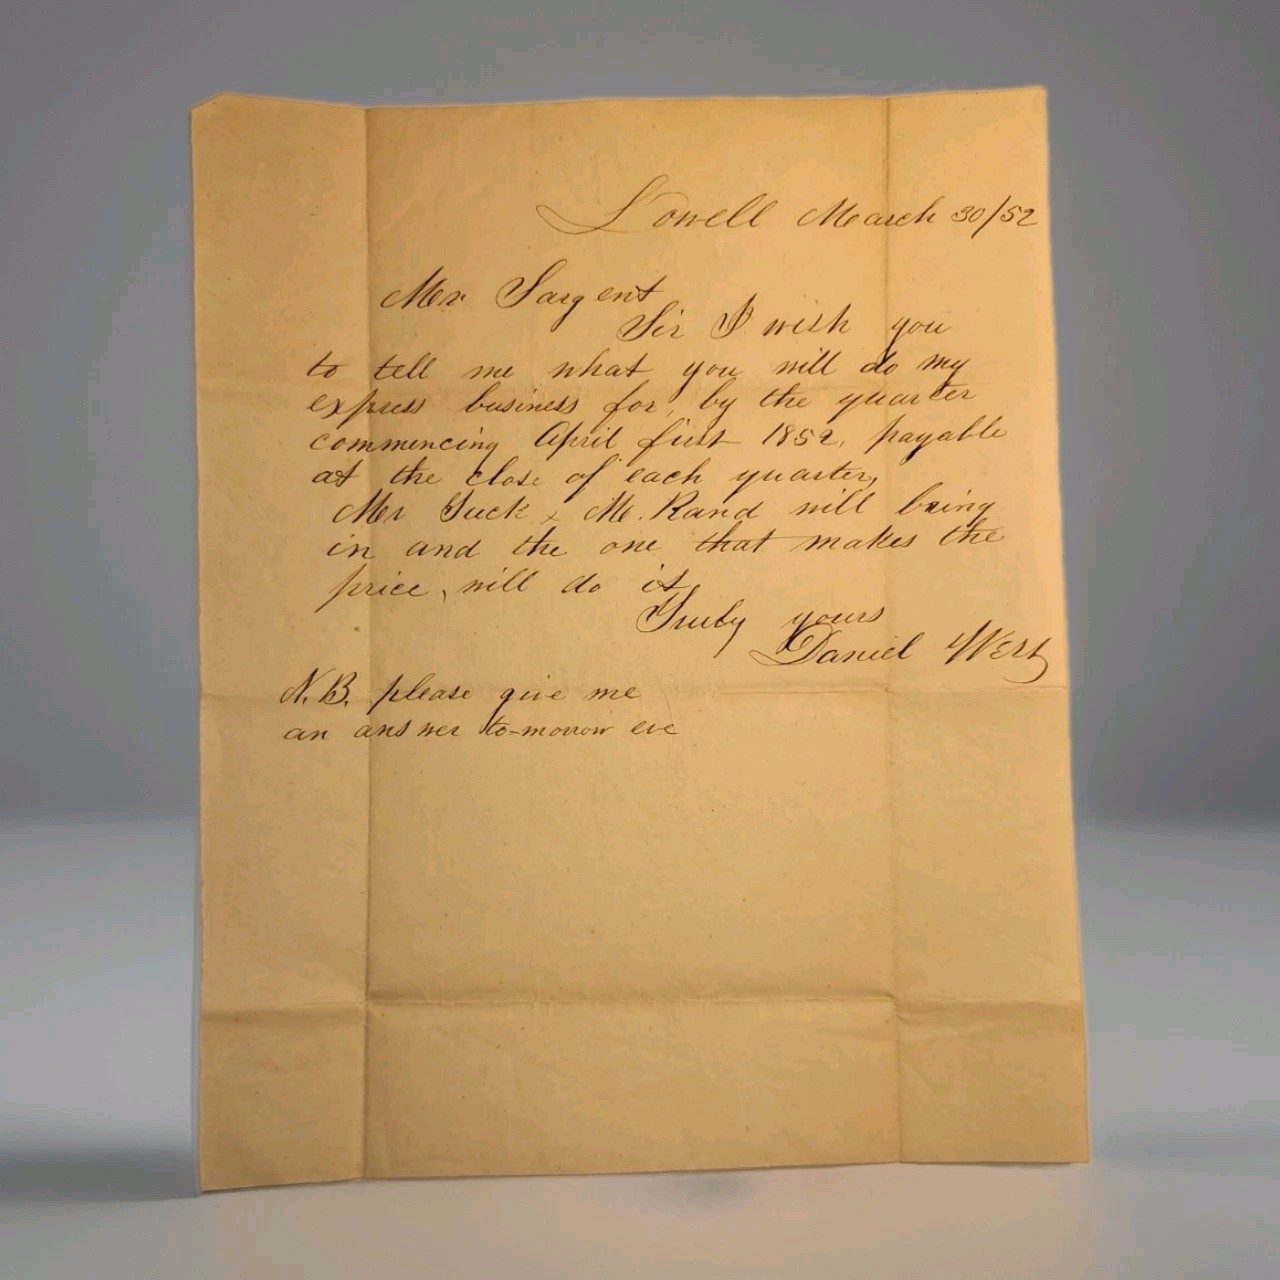 Lowell March 30/52
Mr Sargent
Sir I wish you
to tell me what you will do my
express business for, by the quarter
commencing April first 1852, payable
at the close of each quarter,
Mr Tuck & M. Rand will bring
in and the one that makes the
price, will do it
Truly yours
Daniel West
N.B. please give me
an answer to-morrow eve